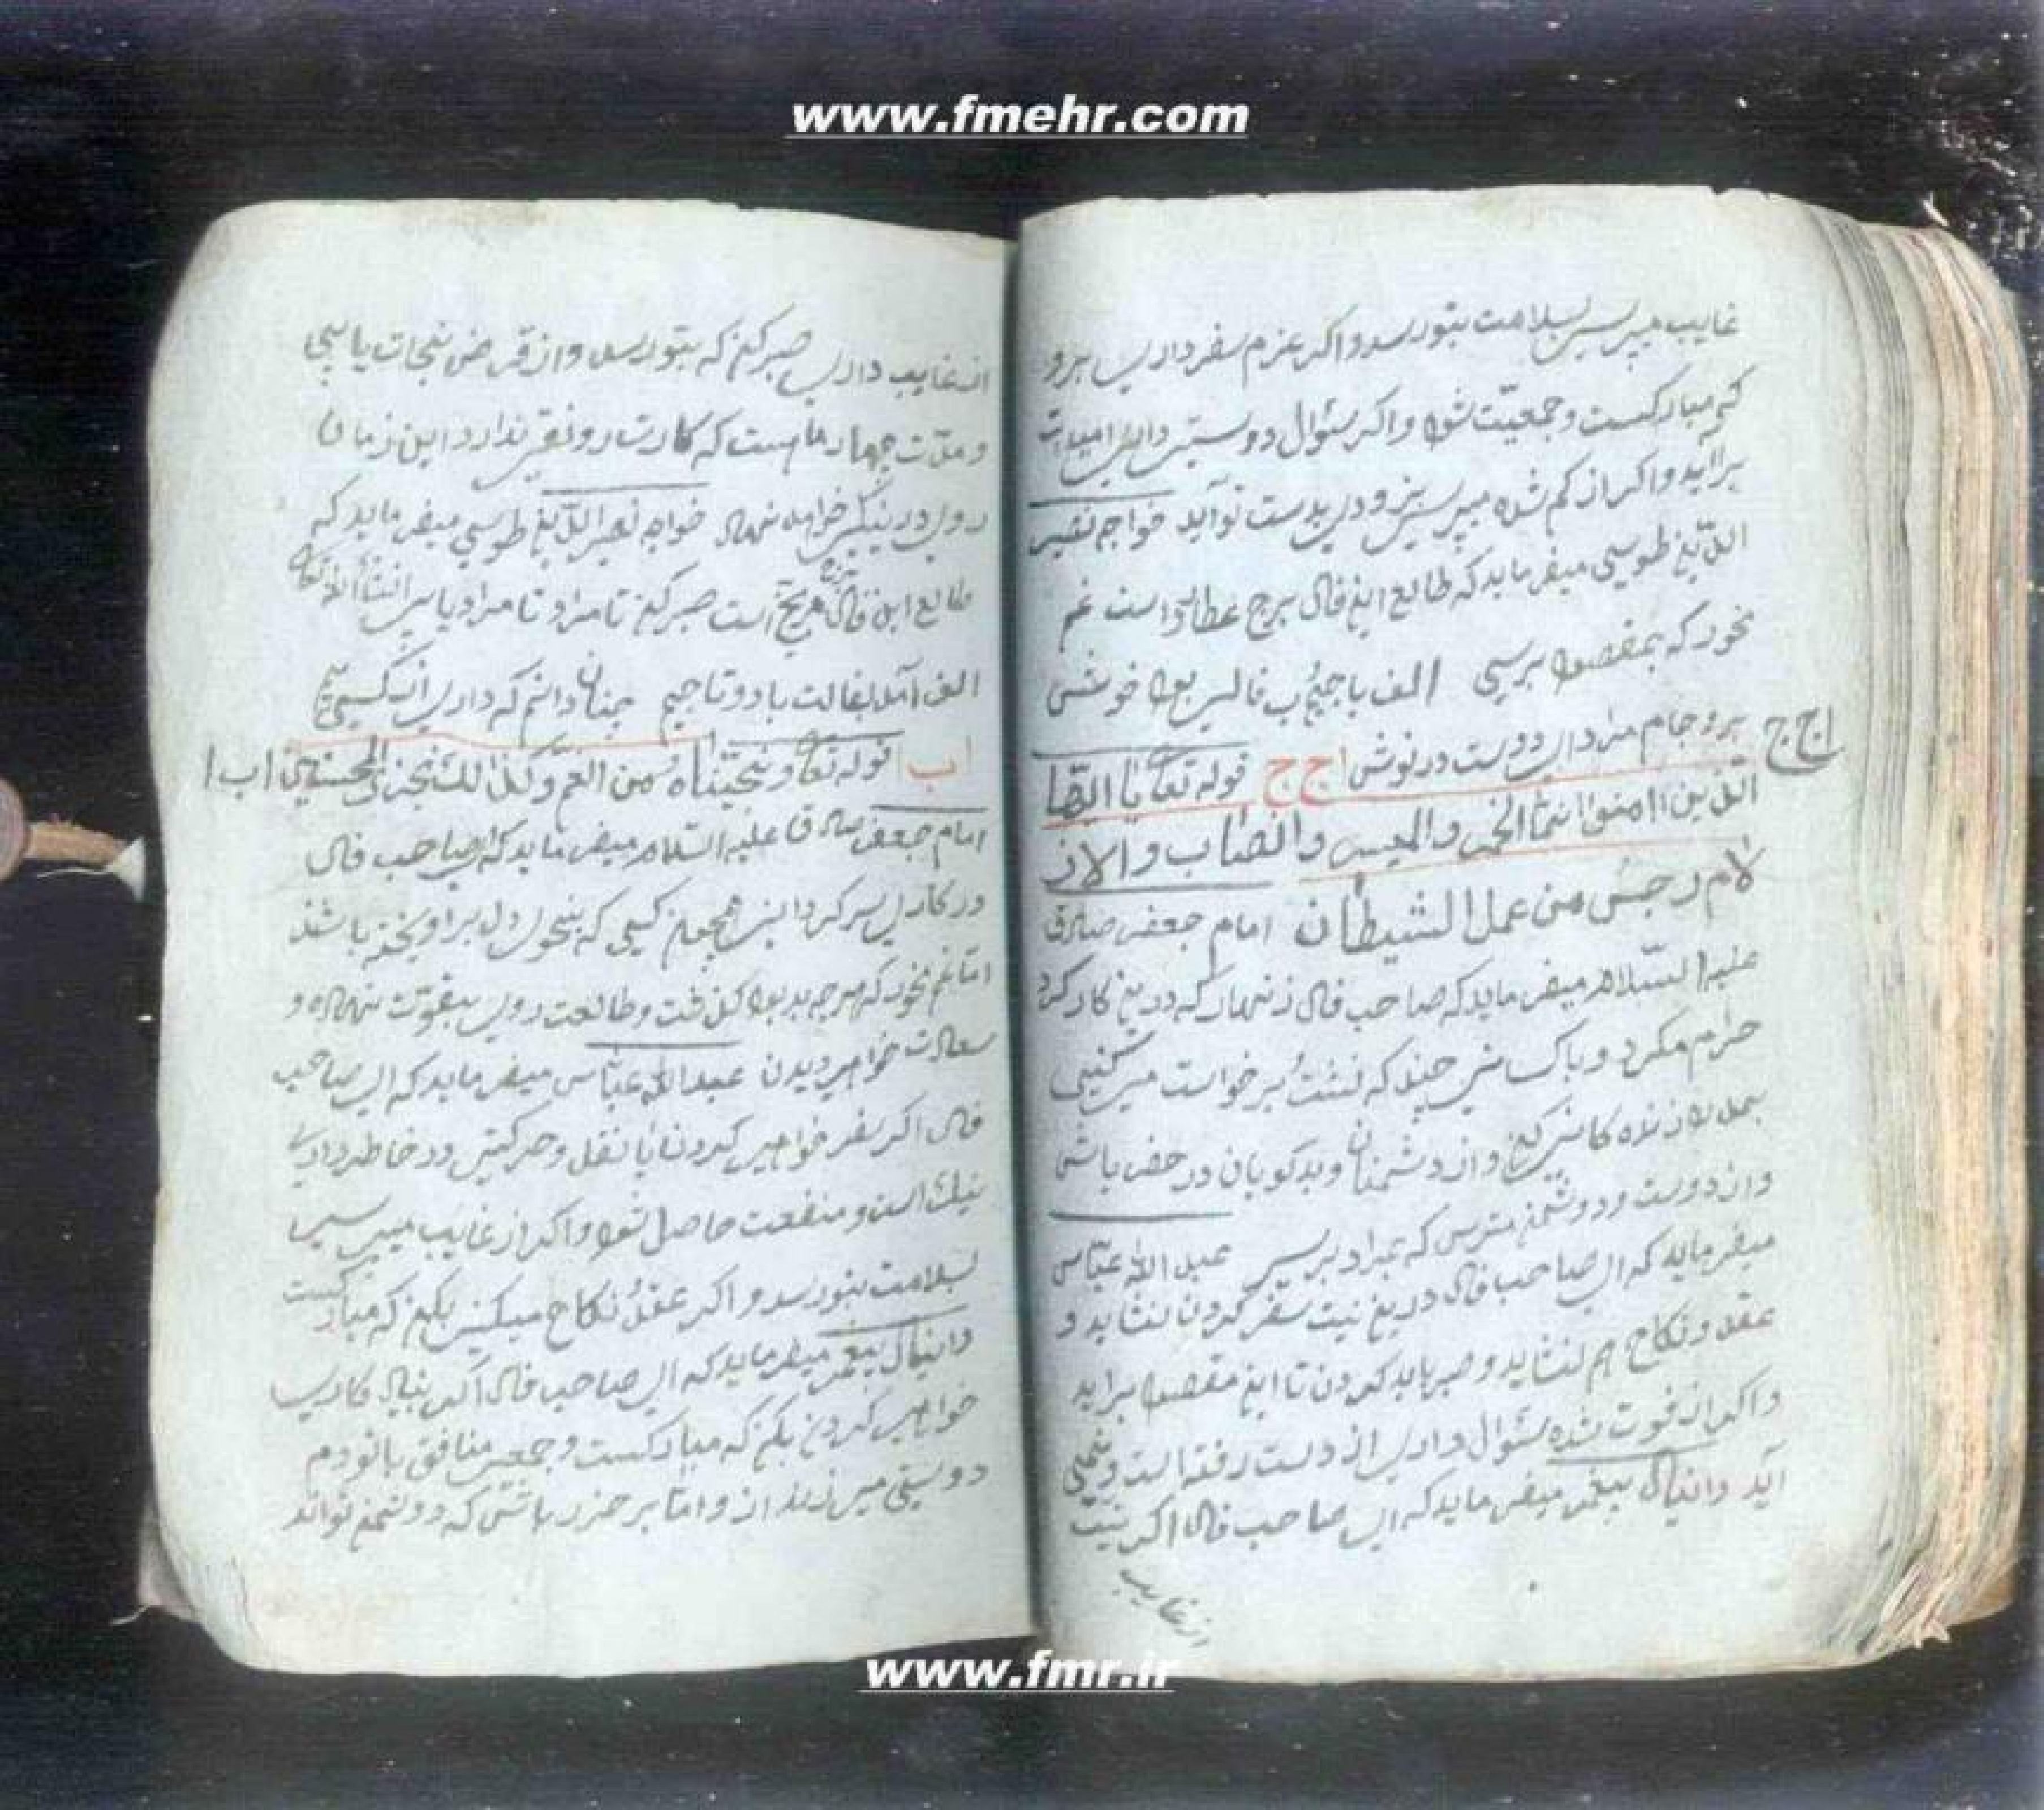 www.fmehr.com
غایب میپرسی بسلامت بتو رسد و اکر عزم سفر داری برو
که مبارکست و جمعیت شود و اکر سئوال دوستی داری امیدت
براید و اکر از کم شده میپرسی بزودی بدست تو آید خواجه نصیر
الدین طوسی میفرماید که طالع این فال برج عطارد است غم
نخور که بمقصود برسی الف با جیم ب فالی بود خوش
برو جام مراد ای دوست در نوش ا ج ج قوله تعا یا ایها
ا ج ج
الذین امنوا انما الخمر والمیسر والانصاب والاز
لام رجس من عمل الشیطان امام جعفر صادق
علیه السلام میفرماید که صاحب فال زنهار که درین کار کرد
حرام مکرد و باکسانی چند که نشت برخواست میکنی
و از دشمنان و بدکویان در حذر باشی
و از دوست و دوشمن مترس که بمراد برسی عبد الله عباس
میفرماید که ای صاحب فال درین نیت سفر کردن نشاید و
عقد و نکاح هم نشاید و صبر باید کردن تا این مقصود براید
و اکر از فوت شده سئوال داری از دست رفته است و نمی
آید دانیال پیغمبر میفرماید که ای صاحب فال اکر نیت
از غایب
از غایب داری صبر کن که بتو رسد و از قرض نجات یابی
و مدت چهار ماست که کارت رونقی ندارد این زمان
روی در نیکی خواهد نهاد خواجه نصیر الدین طوسی میفرماید که
طالع این فال برج مریخ است صبر کن تا مراد یابی انشأ الله تعا
الف آمد بفالت با دو تا جیم چنان دانم که داری از کسی بیم
اب قوله تعا ونجیناه من الغم وکذالک ننجی المحسنین ا ب ا
امام جعفر صادق علیه السلام میفرماید که ای صاحب فال
در کاری سرکردانی همچون کسی که
اما غم نخور که هرچه بد بود کذشت و طالعت روی بقوت نهاده و
سعادت خواهی دیدن عبد الله عباس میفرماید که ای صاحب
فال اکر سفر خواهی کردن یا نقل و حرکتی در خاطر داری
نیک است و منفعت حاصل شود و اکر از غایب میپرسی
بسلامت بتو رسد و اکر عقد نکاح میکنی بکن که مبارکست
دانیال پیغمبر میفرماید که ای صاحب فال اکر بنیاد کاری
خواهی کردن بکن که مبارکست و جمعی منافق با تو دم
دوستی میزنند از و اما بر حذر باش که دوشمن تواند
www.fmr.ir